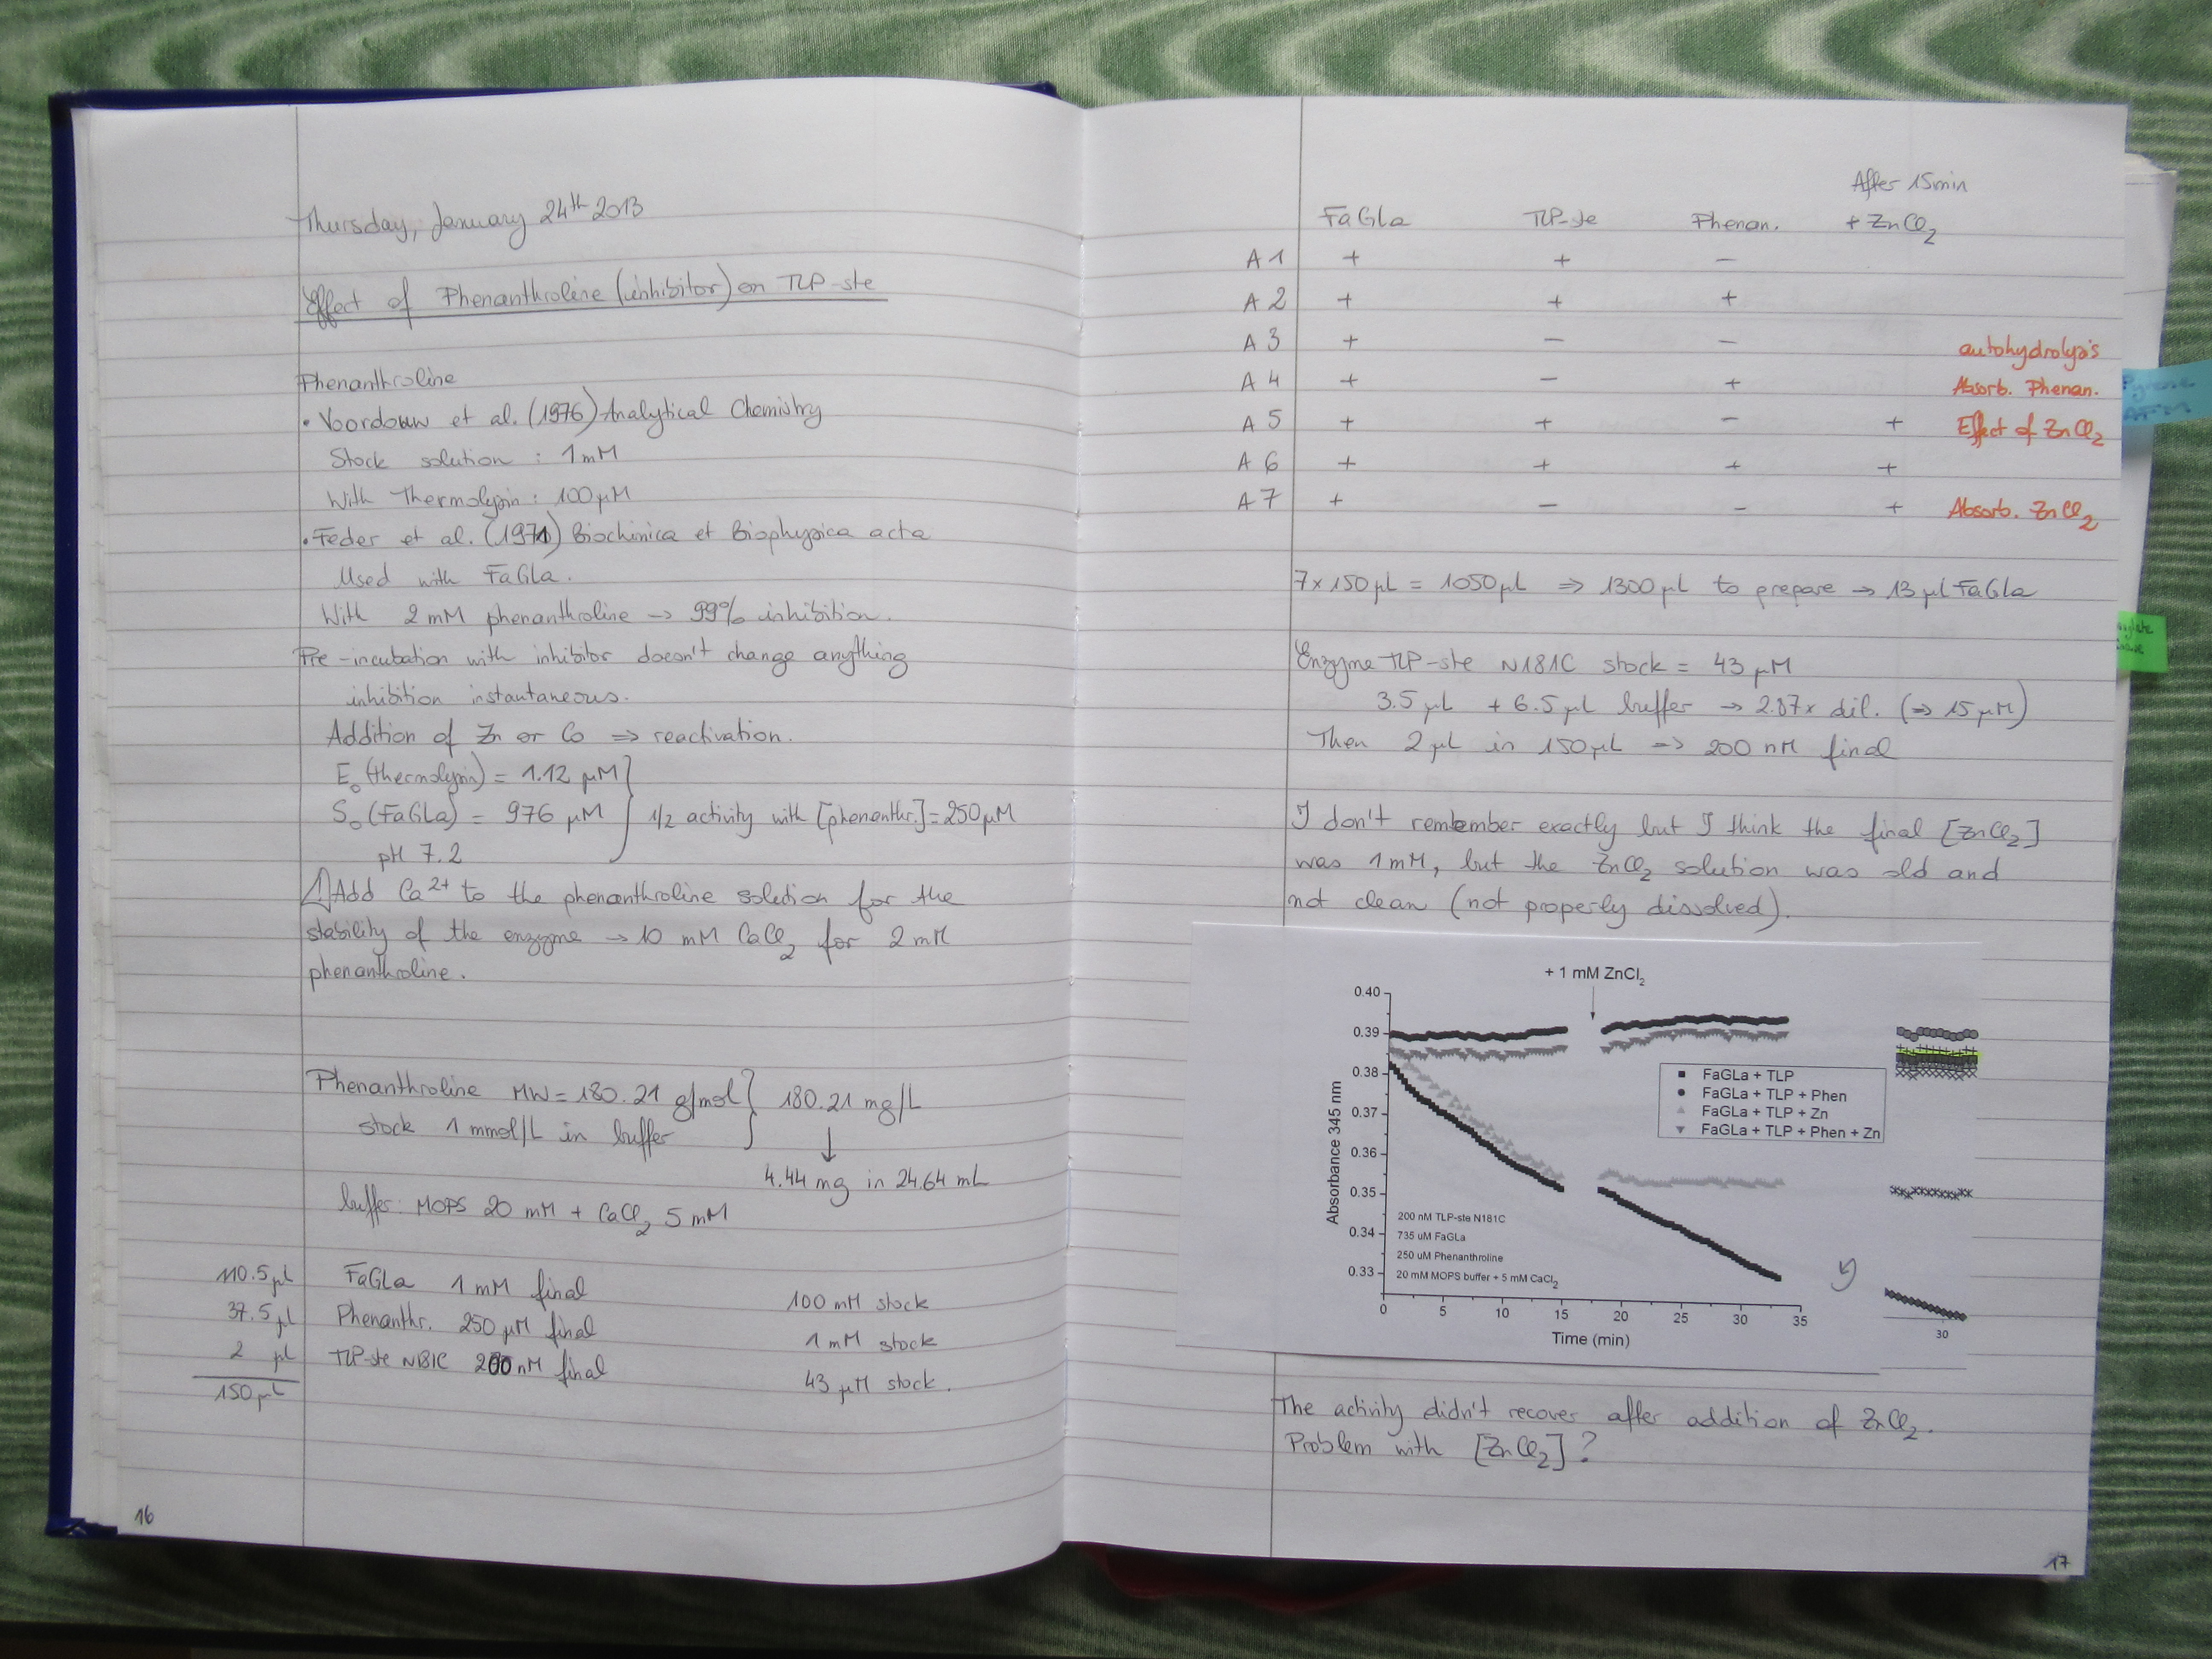 Thursday, January 24th 2013
Effect of Phenanthroline (inhibitor) on TLP-ste
Phenanthroline
• Voordouw et al. (1976) Analytical Chemistry
Stock solution : 1 mM
With Thermolysin : 100 µM
• Feder et al. (1971) Biochimica et Biophysica acta
Used with FaGla.
With 2 mM phenanthroline → 99% inhibition.
Pre-incubation with inhibitor doesn't change anything
inhibition instantaneous.
Addition of Zn or Co ⇒ reactivation.
E₀ (thermolysin) = 1.12 µM
S₀ (FaGla) = 976 µM } 1/2 activity with [phenanthr.] = 250 µM
pH 7.2
⚠ Add Ca²⁺ to the phenanthroline solution for the
stability of the enzyme → 10 mM CaCl₂ for 2 mM
phenanthroline.
Phenanthroline MW = 180.21 g/mol } 180.21 mg/L
stock 1 mmol/L in buffer
↓
4.44 mg in 24.64 mL
buffer: MOPS 20 mM + CaCl₂ 5 mM
110.5 µl FaGla 1 mM final 100 mM stock
37.5 µl Phenanthr. 250 µM final 1 mM stock
2 µl TLP-ste N181C 200 nM final 43 µM stock.
150 µL
16
After 15min
FaGla TLP-ste Phenan. + ZnCl₂
A1 + + −
A2 + + +
A3 + − − autohydrolysis
A4 + − + Absorb. Phenan.
A5 + + − + Effect of ZnCl₂
A6 + + + +
A7 + − − + Absorb. ZnCl₂
7×150 µl = 1050 µl ⇒ 1300 µl to prepare → 13 µl FaGla
Enzyme TLP-ste N181C stock = 43 µM
3.5 µL + 6.5 µL buffer → 2.87x dil. (⇒ 15 µM)
Then 2 µL in 150 µL ⇒ 200 nM final
I don't remember exactly but I think the final [ZnCl₂]
was 1 mM, but the ZnCl₂ solution was old and
not clean (not properly dissolved).
+ 1 mM ZnCl₂
Absorbance 345 nm
0.40
0.39
0.38
0.37
0.36
0.35
0.34
0.33
FaGLa + TLP
FaGLa + TLP + Phen
FaGLa + TLP + Zn
FaGLa + TLP + Phen + Zn
200 nM TLP-ste N181C
735 uM FaGLa
250 uM Phenanthroline
20 mM MOPS buffer + 5 mM CaCl₂
0 5 10 15 20 25 30 35
Time (min)
30
The activity didn't recover after addition of ZnCl₂.
Problem with [ZnCl₂] ?
17